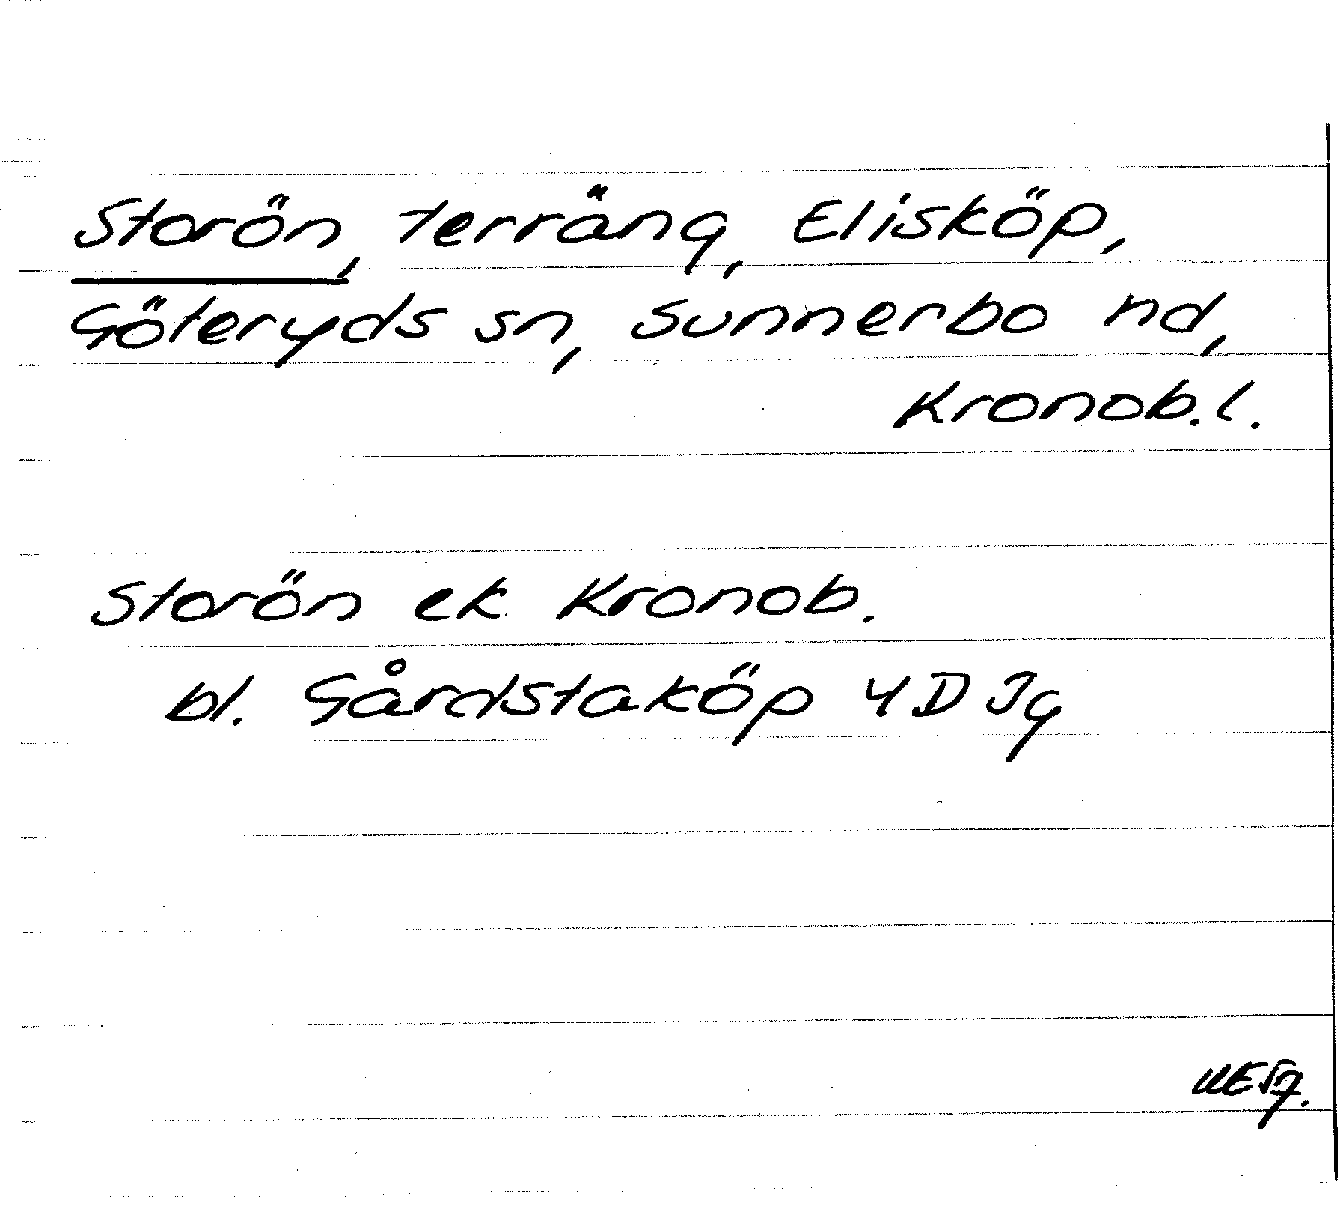 Storön, terräng, Elisköp,
Göteryds sn, Sunnerbo hd,
Kronob.l.
Storön ek Kronob.
bl. Gårdstaköp 4D Jg